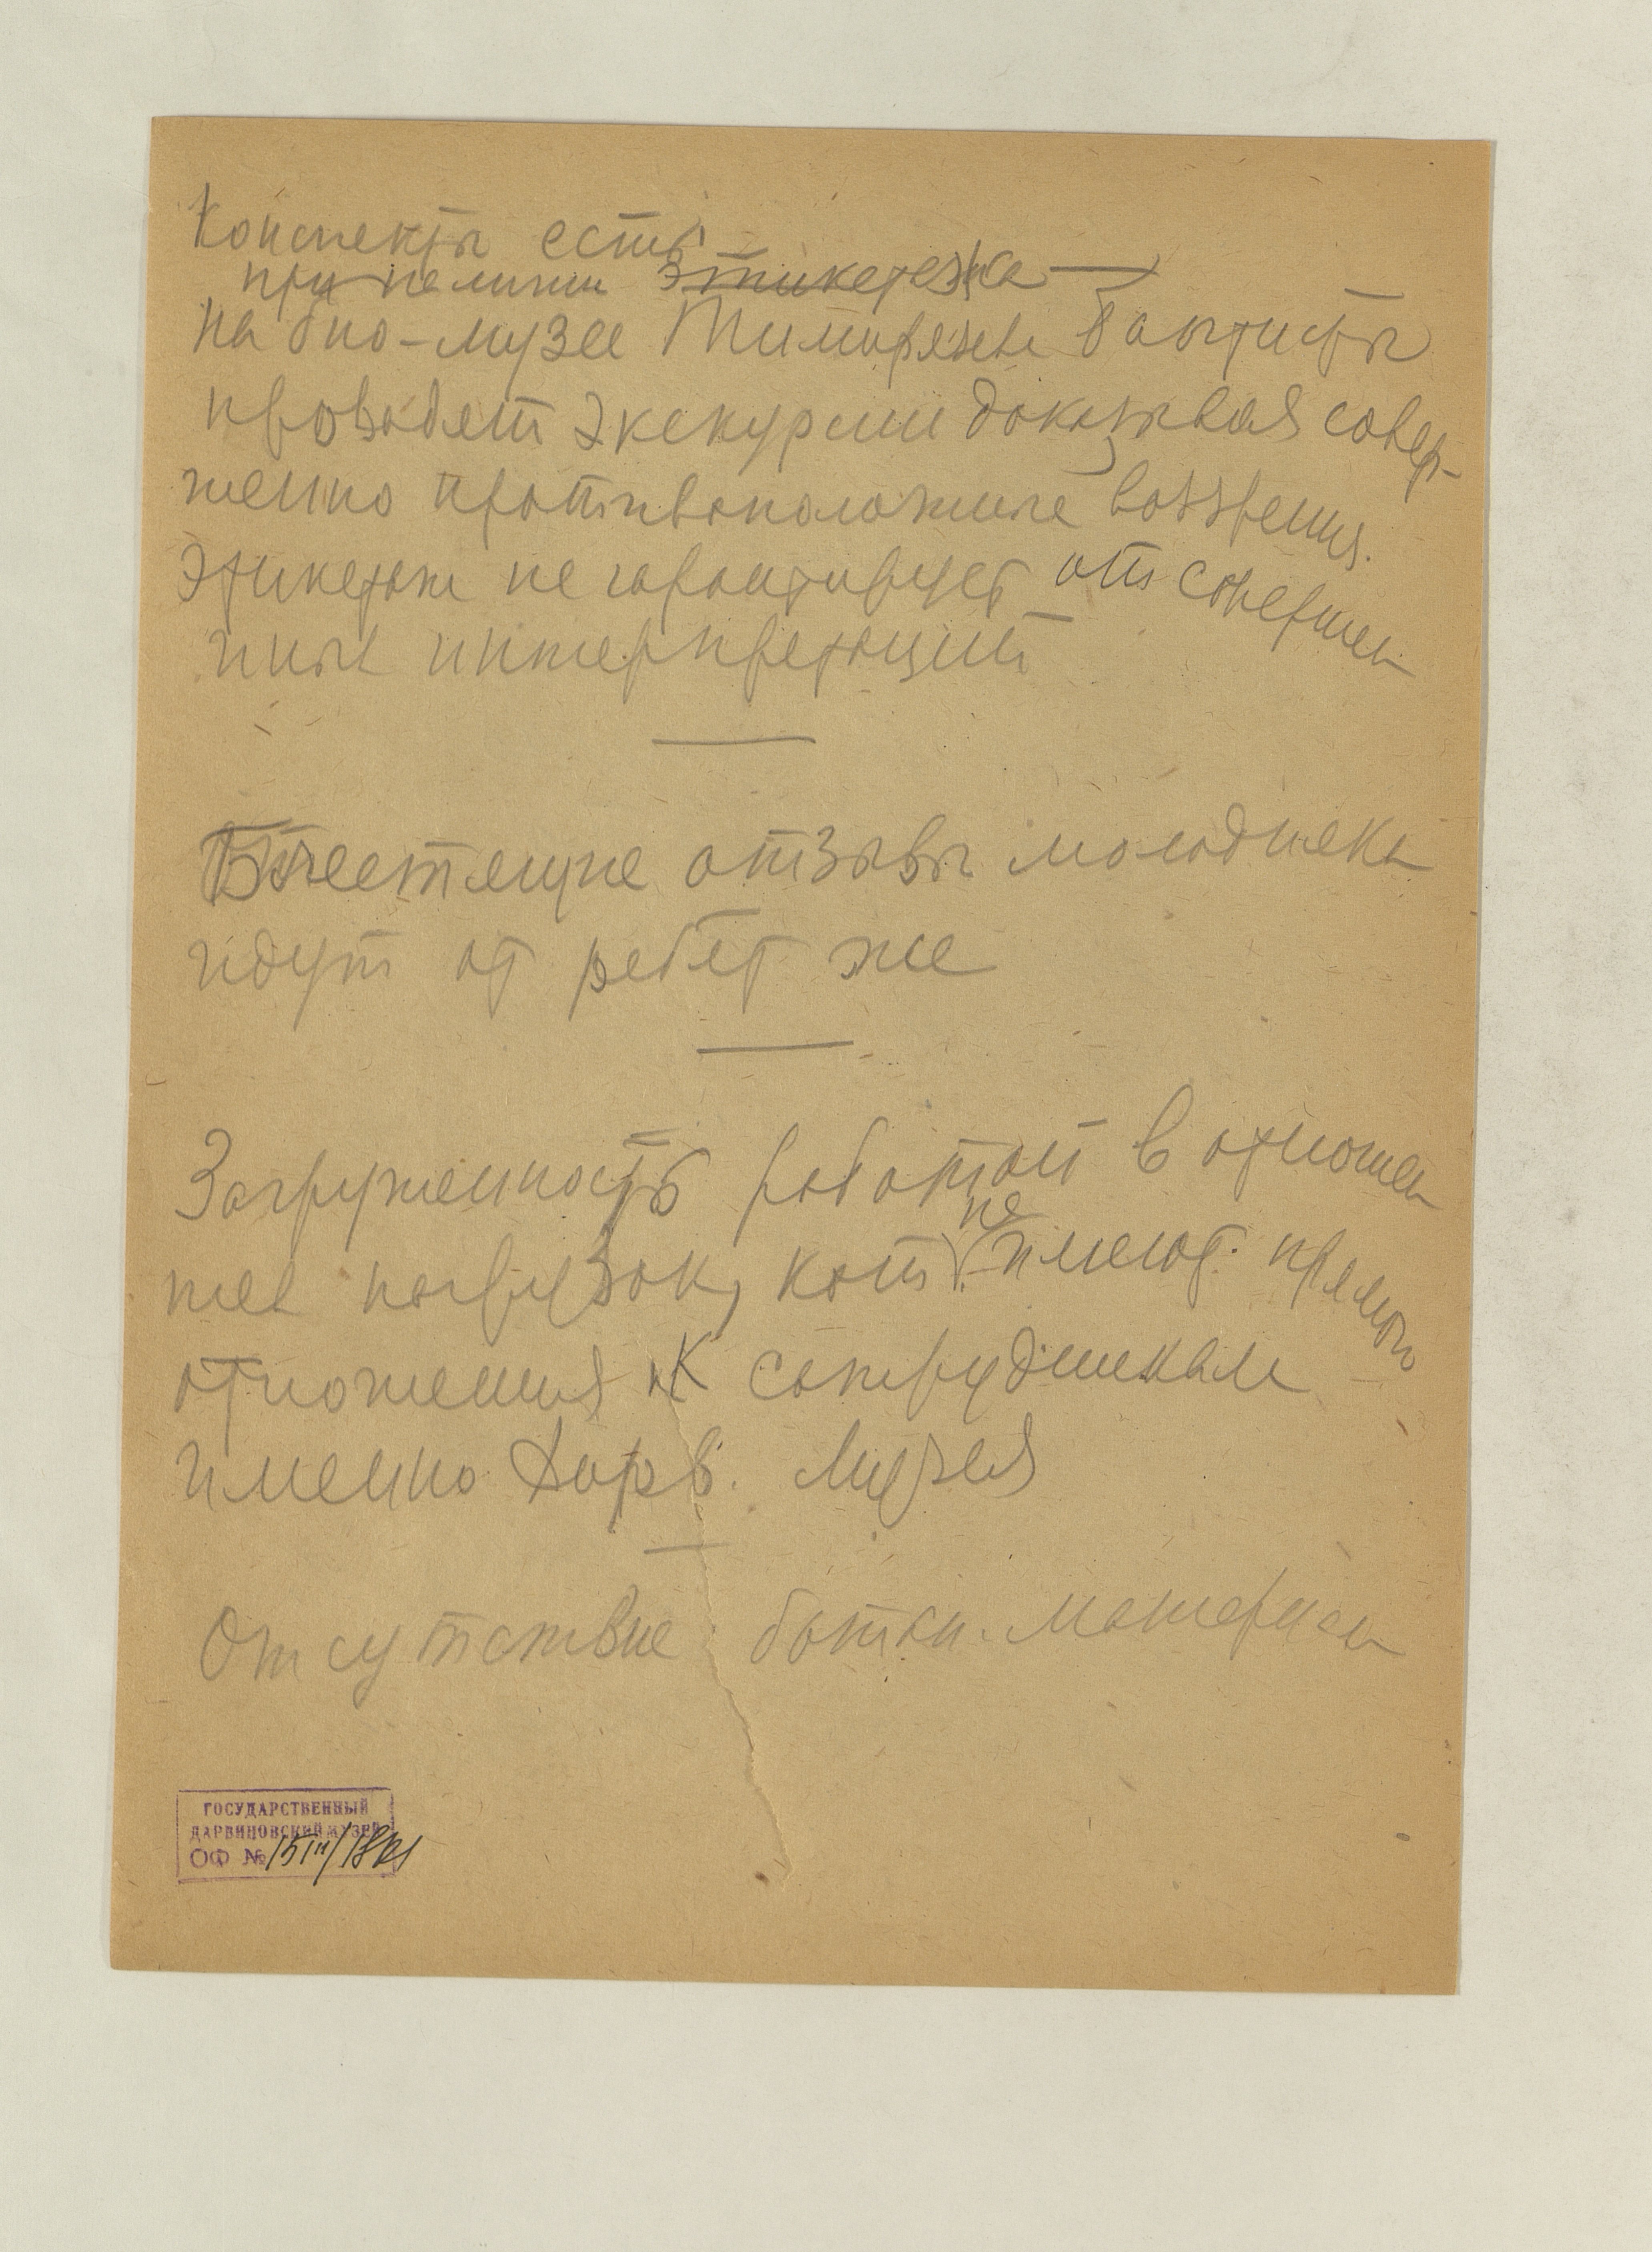 Конспекты есть
при наличии этикетажа
На био-музее Тимирязева баптисты
проводят экскурсии доказывая совер-
шенно противоположные воззрения.
Этикетаж не гарантирует от совершен
ных интерпретаций
Блестящие отзывы молодняка
идут от ребят же
Загруженность работой в отноше
нии нагрузок, кот не имеют прямого
отношения к сотрудникам
именно Дарв. Музея
Отсутствие ботан. материала
ГОСУДАРСТВЕННЫЙ
ДАРВИНОВСКИЙ МУЗЕЙ
ОФ №